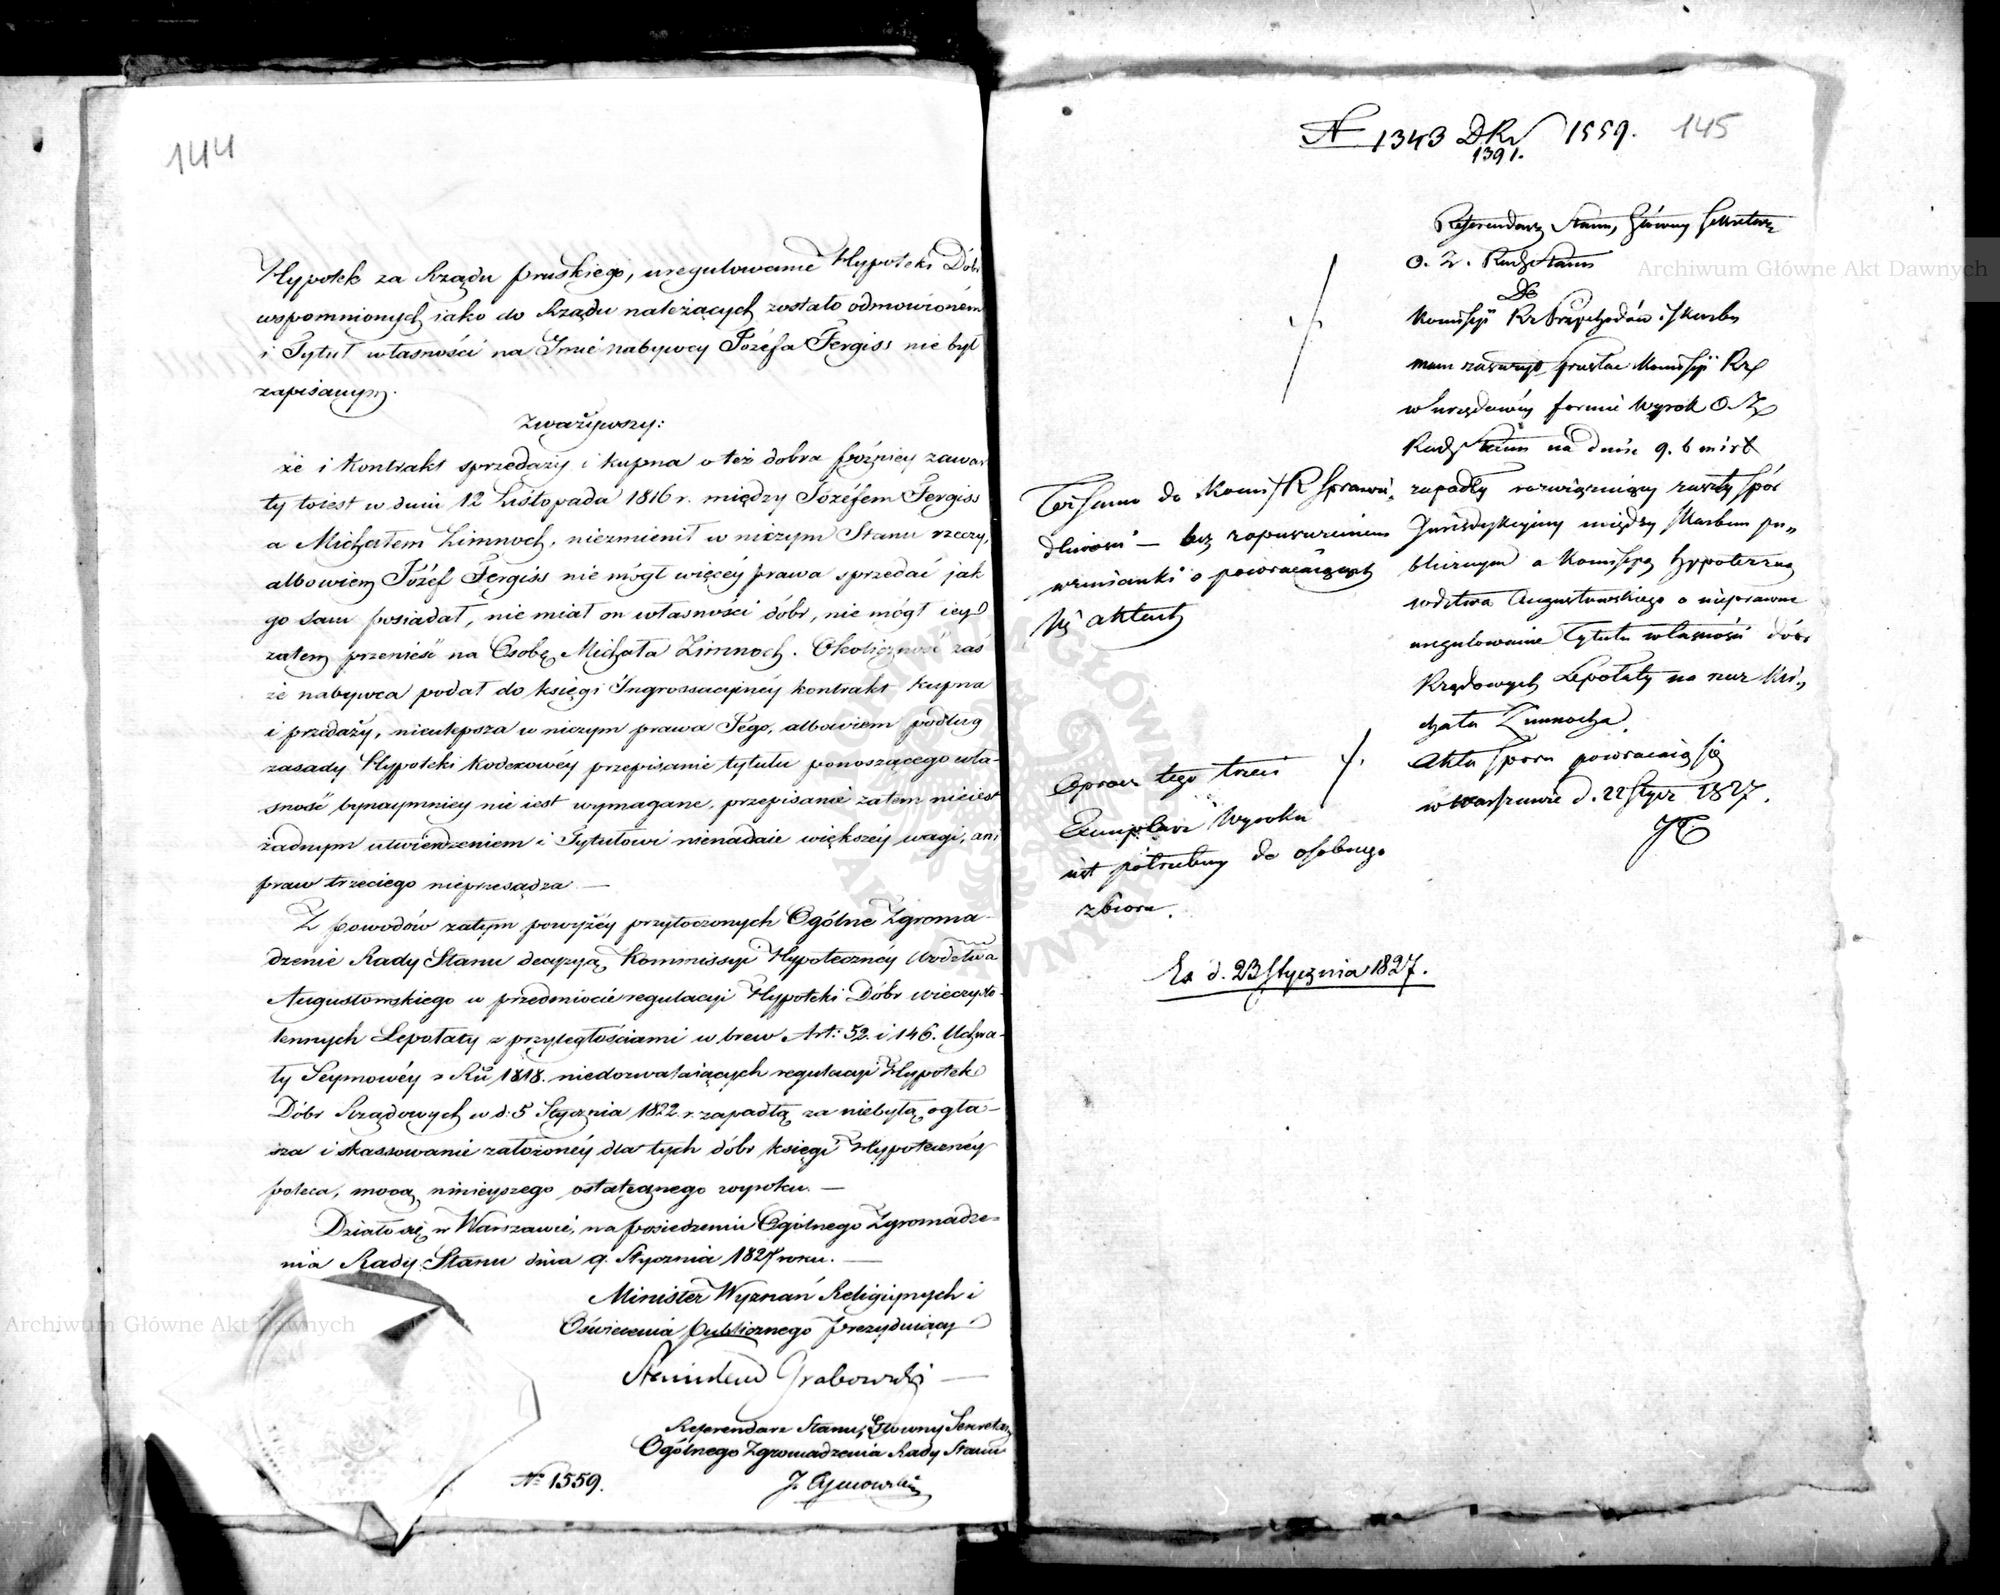 144
Hypotek za Rządu pruskiego, uregulowanie Hypoteki Dóbr
wspomnionych iako do Rządu należących zostało odmowioném
i Tytuł własności na Imie nabywcy Józefa Fergiss nie był
zapisanym.
Zważywszy:
że i Kontrakt sprzedaży i kupna o też dobra późniéy zawar
ty toiest w dniu 12 Listopada 1816 r. między Józefem Fergiss
a Michałem Zimnoch, niezmienił w niczym Stanu rzeczy,
albowiem Józef Fergiss nie mógł więcéy prawa sprzedać jak
go sam posiadał, nie miał on własności dóbr, nie mógł iey
zatem przenieść na Osobę Michała Zimnoch. Okoliczność zaś
że nabywca podał do księgi Ingrossacyinéy kontrakt kupna
i przedaży, nieulepsza w niczym prawa Jego, albowiem podług
zasady Hypoteki Kodexowéy przepisanie tytułu ponoszącego wła-
sność bynaymniey nie iest wymagane, przepisanie zatem nieiest
żadnym utwierdzeniem i Tytułowi nienadaie większéy wagi, ani
praw trzeciego nieprzesądza —
Z powodów zatym powyżéy przytoczonych Ogólne Zgroma-
dzenie Rady Stanu decyzyą Kommissyi Hypotecznéy Wodztwa
Augustowskiego w przedmiocie regulacyi Hypoteki Dóbr wieczysto-
tennych Lepotaty z przyległościami w brew Art: 52. i 146. Uchwa-
ły Seymowéy z Ru 1818. niedozwalaiących regulacyi Hypotek
Dóbr Rządowych w d: 5 Stycznia 1822 r. zapadłą za niebyłą ogła-
sza i skassowanie założonéy dla tych dóbr księgi Hypotecznéy
poleca, mocą ninieyszego ostatecznego wyroku. —
Działo się w Warszawie, na posiedzeniu Ogólnego Zgromadze-
nia Rady Stanu dnia 9. Stycznia 1827 roku. —
Minister Wyznań Religiynych i
Oświecenia Publicznego Prezyduiący
Stanisław Grabowski —
Referendarz Stanu, Główny Sekretarz
Ogólnego Zgromadzenia Rady Stanu
No 1559.
J. Tymowski
N 1343 DR 1559. 145
1391.
Referendarz Stanu, Główny Sekretarz
O. Z. Rady Stanu
Do
Komissyi Rz Przychodów i Skarbu
mam zaszczyt przesłać Komissyi Rz
w urzędowéy formie Wyrok O Z
Rady Stanu na dniu 9. b mies
zapadły rozwiązuiący zaszły spór
Jurisdykcyiny między Skarbem pu-
blicznym a Komissyą hypoteczną
wodztwa Augustowskiego o nieprawne
uregulowanie Tytułu własności dóbr
Rządowych Lepotaty na rzecz Mi-
chała Zimnocha.
Akta sporu powracaią się
w Warszawie d. 22 Stycz 1827.
JT
Toż samo do Kom R Sprawie-
dliwości — bez
wzmianki o powracaiących
się aktach
Oprócz tego trzeci
Exemplarz Wyroku
iest potrzebny do osobnego
zbioru.
Ex d. 23 Stycznia 1827.
Archiwum Główne Akt Dawnych
Archiwum Główne Akt Dawnych